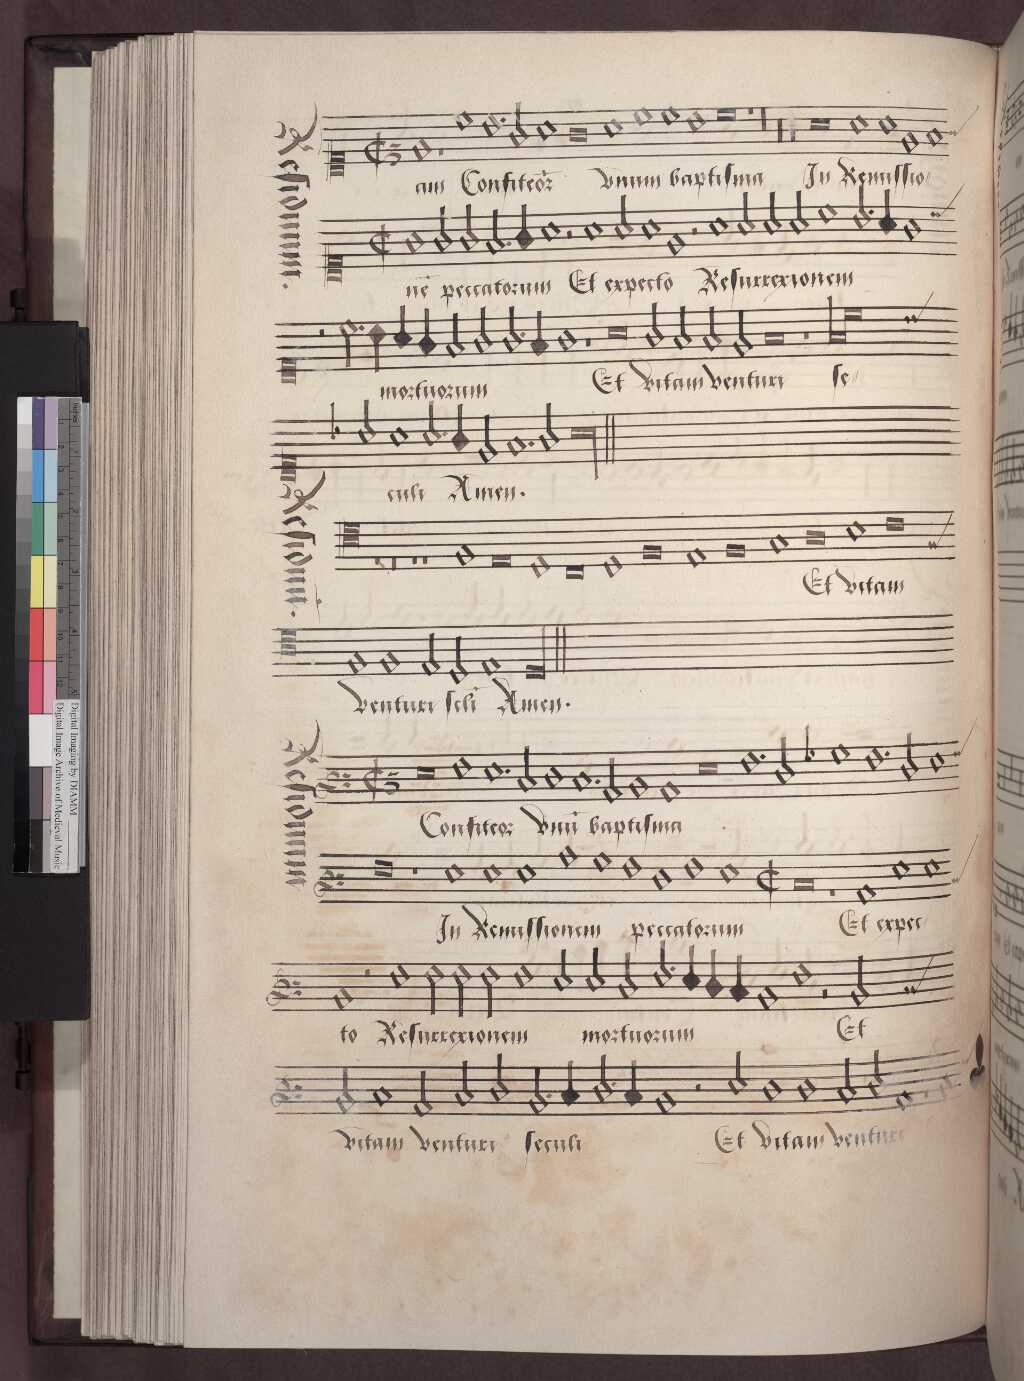 Residuum.
am Confiteor̄ vnum baptisma In Remissio
nē peccatorum Et expecto Resurrexionem
mortuorum Et vitam venturi se
culi Amen.
Residuū.
Et vitam
venturi scli Amen.
Residuum
Confiteor vnū baptisma
In Remissionem peccatorum Et expec
to Resurrexionem mortuorum Et
vitam venturi seculi Et vitam venturi
Digital Imaging by DIAMM
Digital Image Archive of Medieval Music